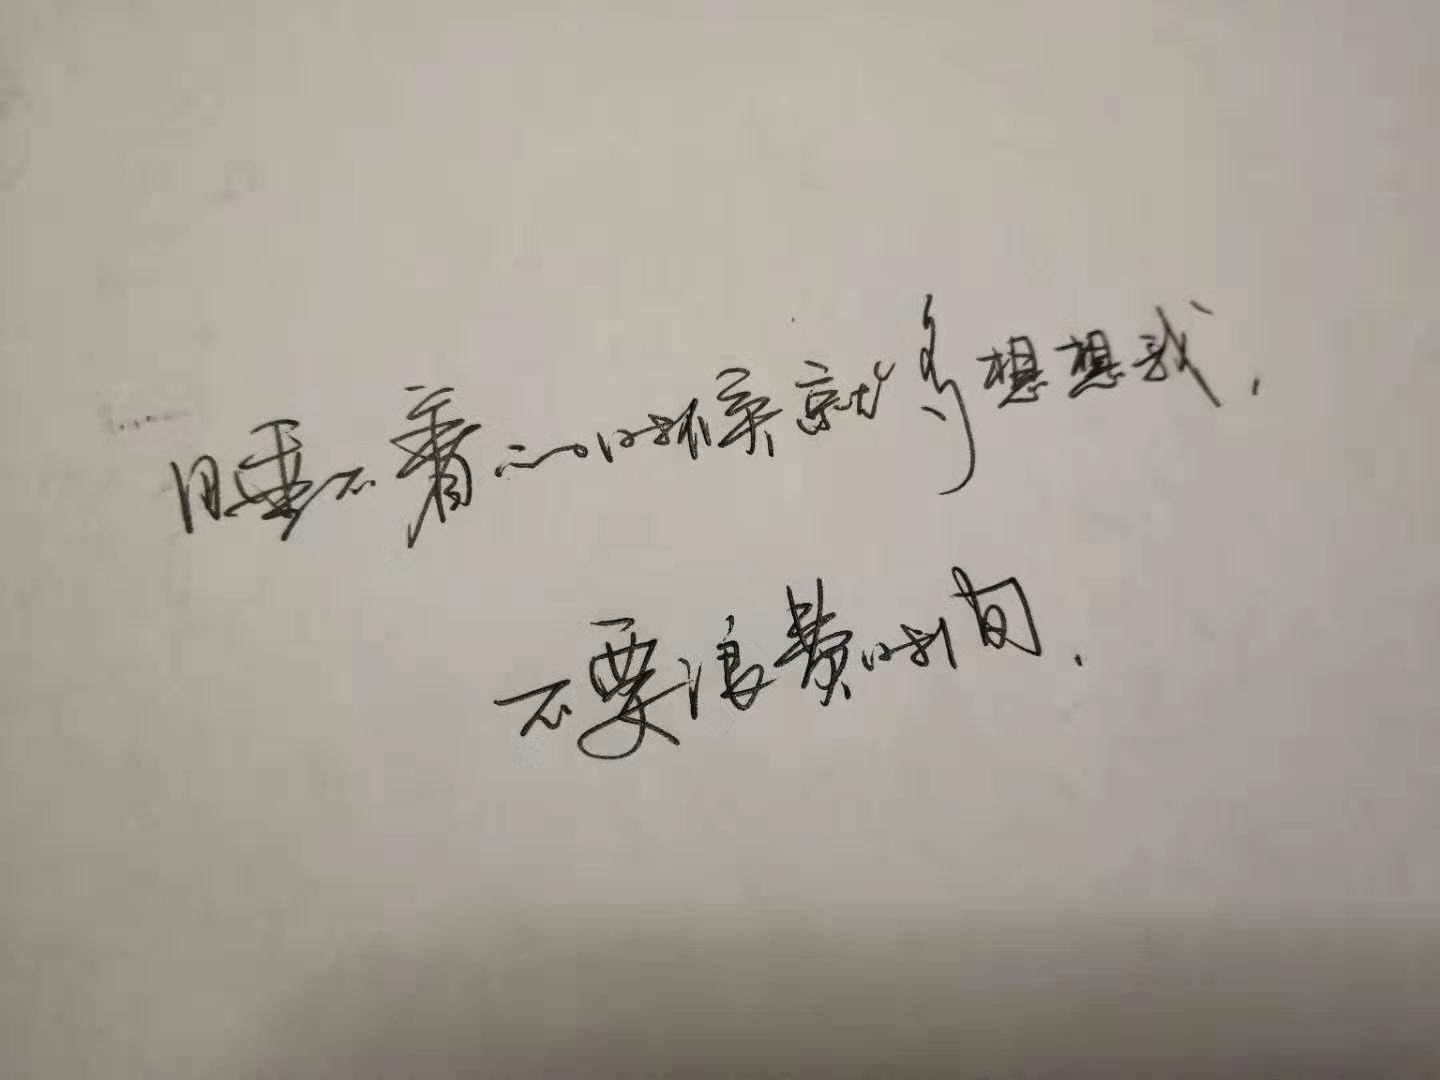 睡不着的时候就多想想我,
不要浪费时间.